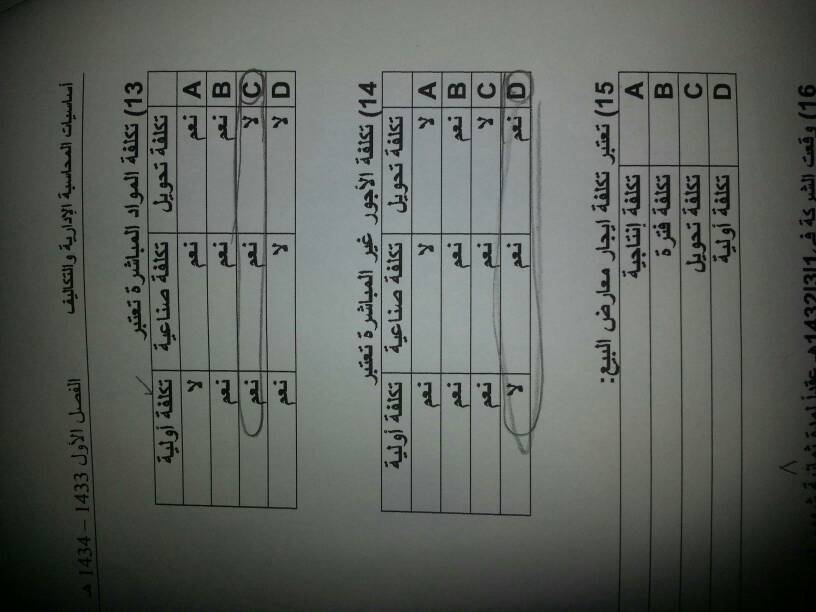 أساسيات المحاسبة الإدارية والتكاليف الفصل الأول 1433 – 1434 هـ
13) تكلفة المواد المباشرة تعتبر
تكلفة تحويل تكلفة صناعية تكلفة أولية
A نعم نعم لا
B نعم نعم نعم
C لا نعم نعم
D لا لا نعم
14) تكلفة الأجور غير المباشرة تعتبر
تكلفة تحويل تكلفة صناعية تكلفة أولية
A لا لا نعم
B نعم نعم نعم
C لا نعم نعم
D نعم نعم لا
15) تعتبر تكلفة ايجار معارض البيع:
A تكلفة إنتاجية
B تكلفة فترة
C تكلفة تحويل
D تكلفة أولية
16) وقعت الشركة في 1432/3/1هـ عقداً